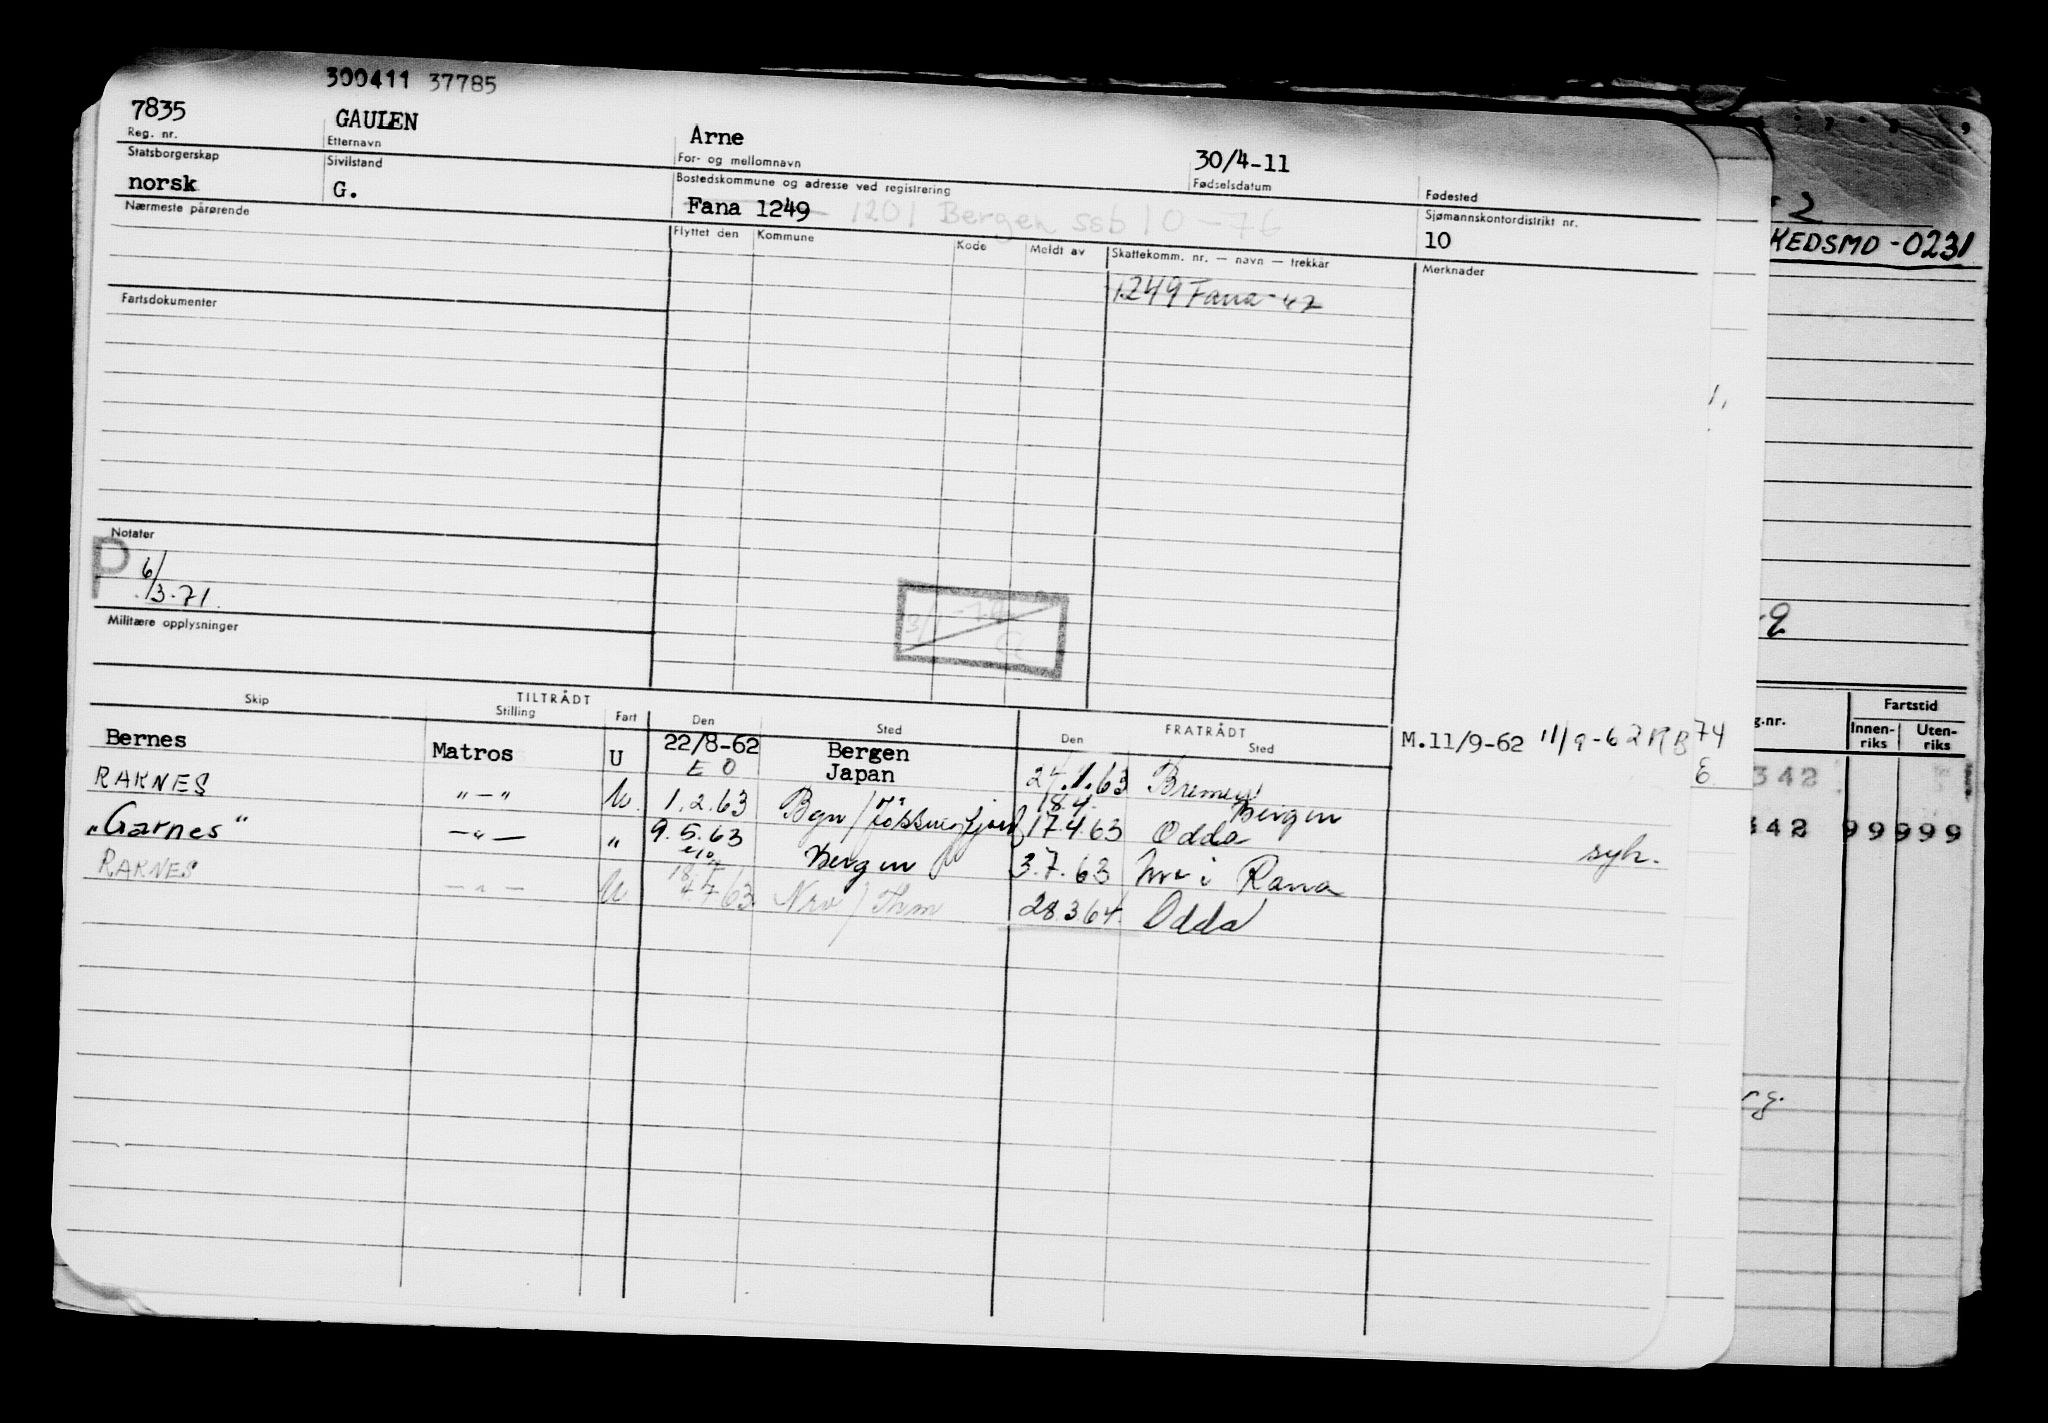 300411 37785
7835 GAULEN Arne 30/4-11
Reg. nr. Etternavn For- og mellomnavn Fødselsdatum Fødested
Statsborgerskap Sivilstand Bostedskommune og adresse ved registrering Sjømannskontordistrikt nr.
norsk G. Fana 1249 1201 Bergen ssb 10-76 10
KEDSMO-0231
Nærmeste pårørende Flyttet den Kommune Kode Meldt av Skattekomm. nr. — navn — trekkår Merknader
1249 Fana
Fartsdokumenter
Notater
P 6/3-71
Militære opplysninger
TILTRÅDT FRATRÅDT
Skip Stilling Fart Den Sted Den Sted
g.nr. Fartstid
Innen-riks Uten-riks
Bernes Matros U 22/8-62 Bergen M.11/9-62 11/9-62 74
Japan 24.1.63 Bremen
342
RAKNES "—" U. 1.2.63 18.4. Bergen
17.4.63 Odda
342 99999
„Garnes" —"— " 9.5.63 Bergen 3.7.63 Rana syk.
RAKNES —"— U 63 Nrv/Thm 28.3.64 Odda